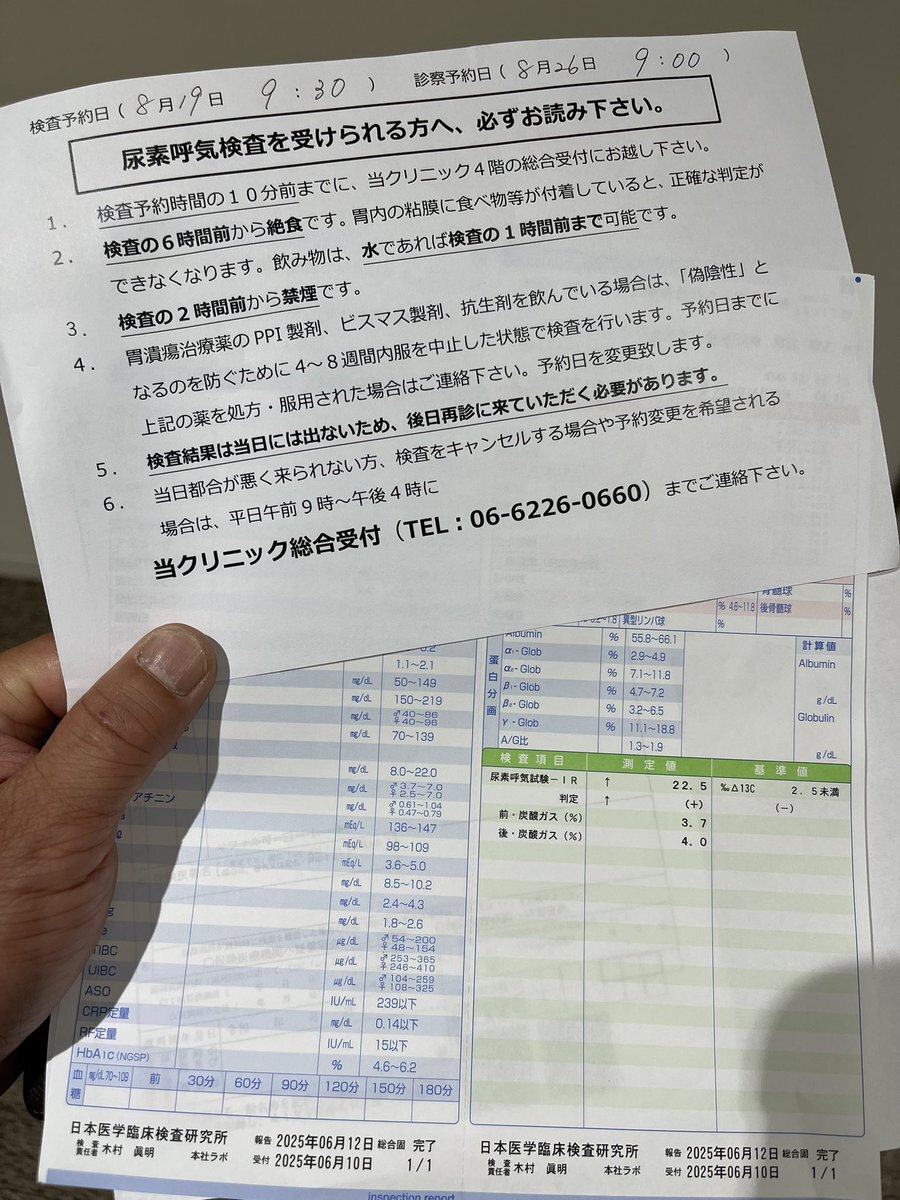 検査予約日（8月19日 9：30） 診察予約日（8月26日 9：00）
尿素呼気検査を受けられる方へ、必ずお読み下さい。
1． 検査予約時間の10分前までに、当クリニック4階の総合受付にお越し下さい。
2． 検査の6時間前から絶食です。胃内の粘膜に食べ物等が付着していると、正確な判定が
できなくなります。飲み物は、水であれば検査の1時間前まで可能です。
3． 検査の2時間前から禁煙です。
4． 胃潰瘍治療薬のPPI製剤、ビスマス製剤、抗生剤を飲んでいる場合は、「偽陰性」と
なるのを防ぐために4～8週間内服を中止した状態で検査を行います。予約日までに
上記の薬を処方・服用された場合はご連絡下さい。予約日を変更致します。
5． 検査結果は当日には出ないため、後日再診に来ていただく必要があります。
6． 当日都合が悪く来られない方、検査をキャンセルする場合や予約変更を希望される
場合は、平日午前9時～午後4時に
当クリニック総合受付（TEL：06-6226-0660）までご連絡下さい。
1.1～2.1
mg/dL 50～149
mg/dL 150～219
mg/dL ♂40～86 ♀40～96
mg/dL 70～139
mg/dL 8.0～22.0
mg/dL ♂3.7～7.0 ♀2.5～7.0
アチニン mg/dL ♂0.61～1.04 ♀0.47～0.79
mEq/L 136～147
mEq/L 98～109
mEq/L 3.6～5.0
mg/dL 8.5～10.2
mg/dL 2.4～4.3
mg/dL 1.8～2.6
μg/dL ♂54～200 ♀48～154
TIBC μg/dL ♂253～365 ♀246～410
UIBC μg/dL ♂104～259 ♀108～325
ASO IU/mL 239以下
CRP定量 mg/dL 0.14以下
RF定量 IU/mL 15以下
HbA1c (NGSP) % 4.6～6.2
血糖 mg/dL 70～109 前 30分 60分 90分 120分 150分 180分
日本医学臨床検査研究所 報告 2025年06月12日 総合園 完了
検査責任者 木村 眞明 本社ラボ 受付 2025年06月10日 1/1
% 4.6～11.8 後骨髄球 %
異型リンパ球 %
蛋白分画
Albumin % 55.8～66.1
α₁-Glob % 2.9～4.9
α₂-Glob % 7.1～11.8
β₁-Glob % 4.7～7.2
β₂-Glob % 3.2～6.5
γ-Glob % 11.1～18.8
A/G比 1.3～1.9
計算値
Albumin
g/dL
Globulin
g/dL
検査項目 測定値 基準値
尿素呼気試験-IR ↑ 22.5 ‰Δ13C 2.5未満
判定 ↑ (+) (-)
前・炭酸ガス(%) 3.7
後・炭酸ガス(%) 4.0
日本医学臨床検査研究所 報告 2025年06月12日 総合園 完了
検査責任者 木村 眞明 本社ラボ 受付 2025年06月10日 1/1
inspection report